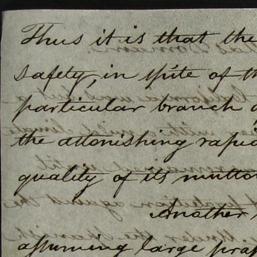 Thus it is that the
safety, in spite of th
particular branch o
the astonishing rapid
quality of its mutton
Another,
assuming large prop